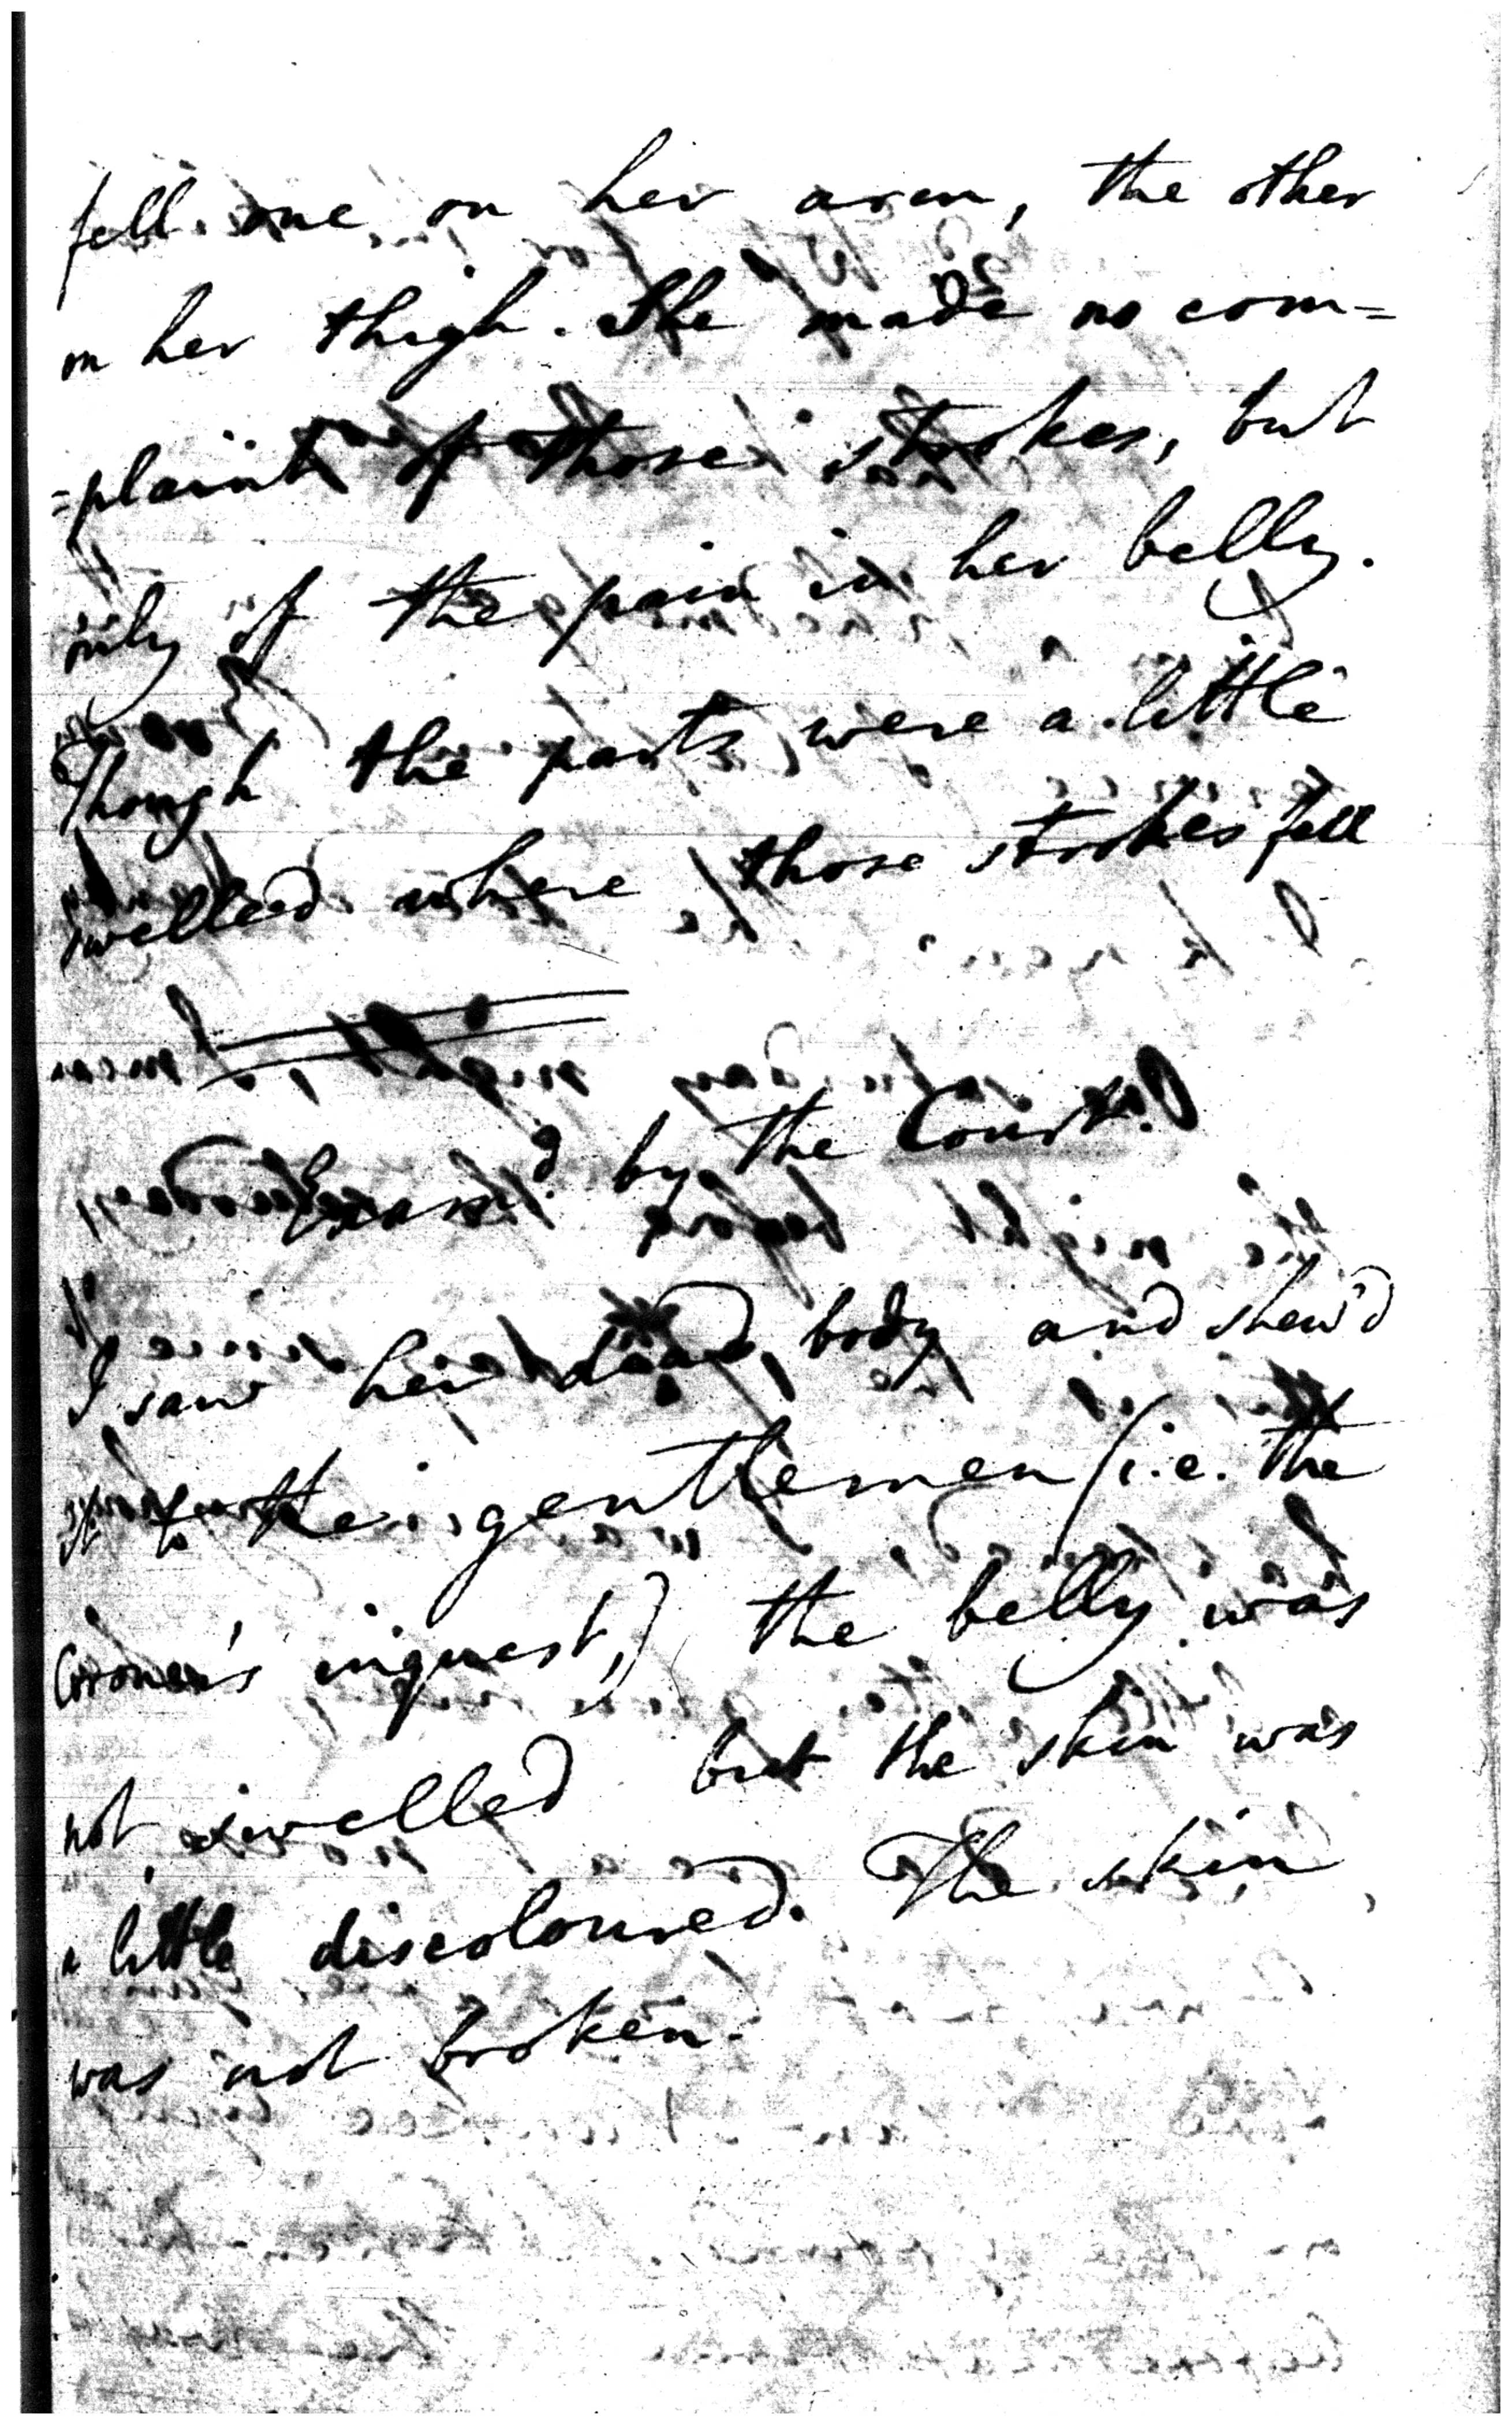 fell one on her arm, the other
on her thigh. She made no com=
=plaint of those strokes, but
only of the pain in her belly.
Though the parts were a little
swelled where those strokes fell
Exam.d by the Court.
I saw her dead body and shew'd
it to the gentlemen (i.e. the
Coroner's inquest,) the belly was
not swelled but the skin was
a little discoloured. The skin
was not broken.